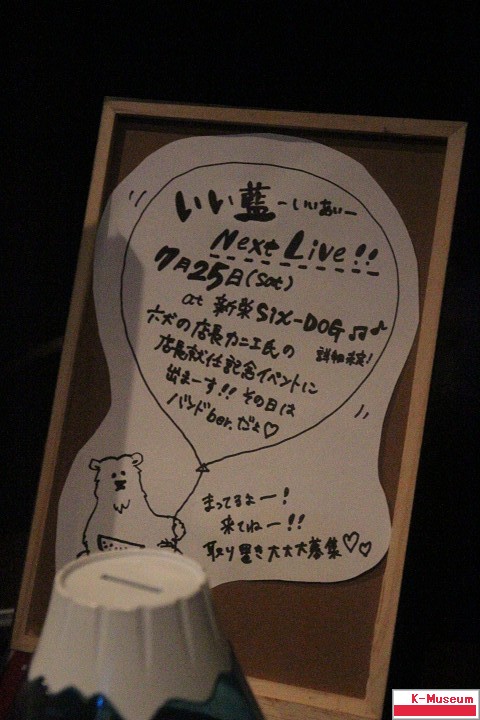 いい藍 -いいあい-
Next Live!!
7月25日(Sat)
at 新栄SiX-DOG
詳細未定!
六犬の店長カニエ氏の
店長就任記念イベントに
出まーす!! その日は
バンドver.だよ♡
まってるよー!
来てねー!!
取り置き大大大募集♡♡
K-Museum